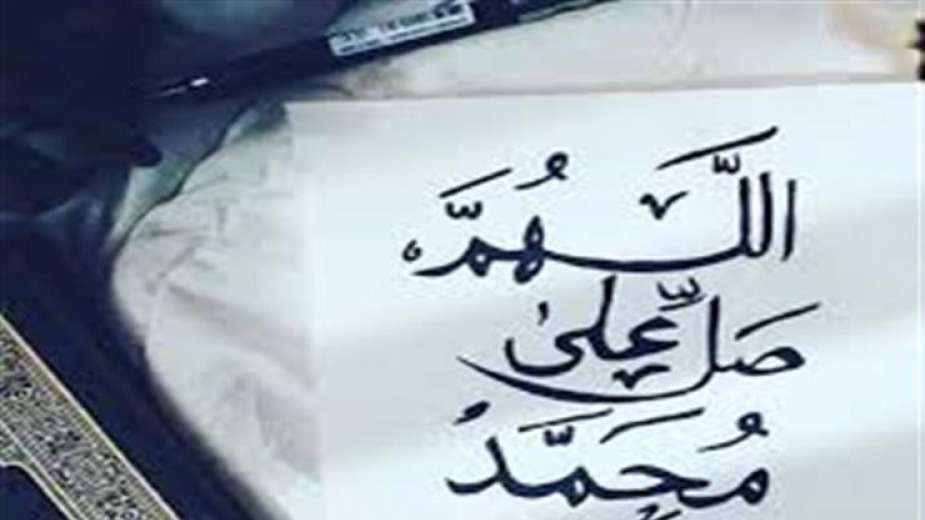 اللَّهُمَّ
صَلِّ عَلىٰ
مُحَمَّدْ